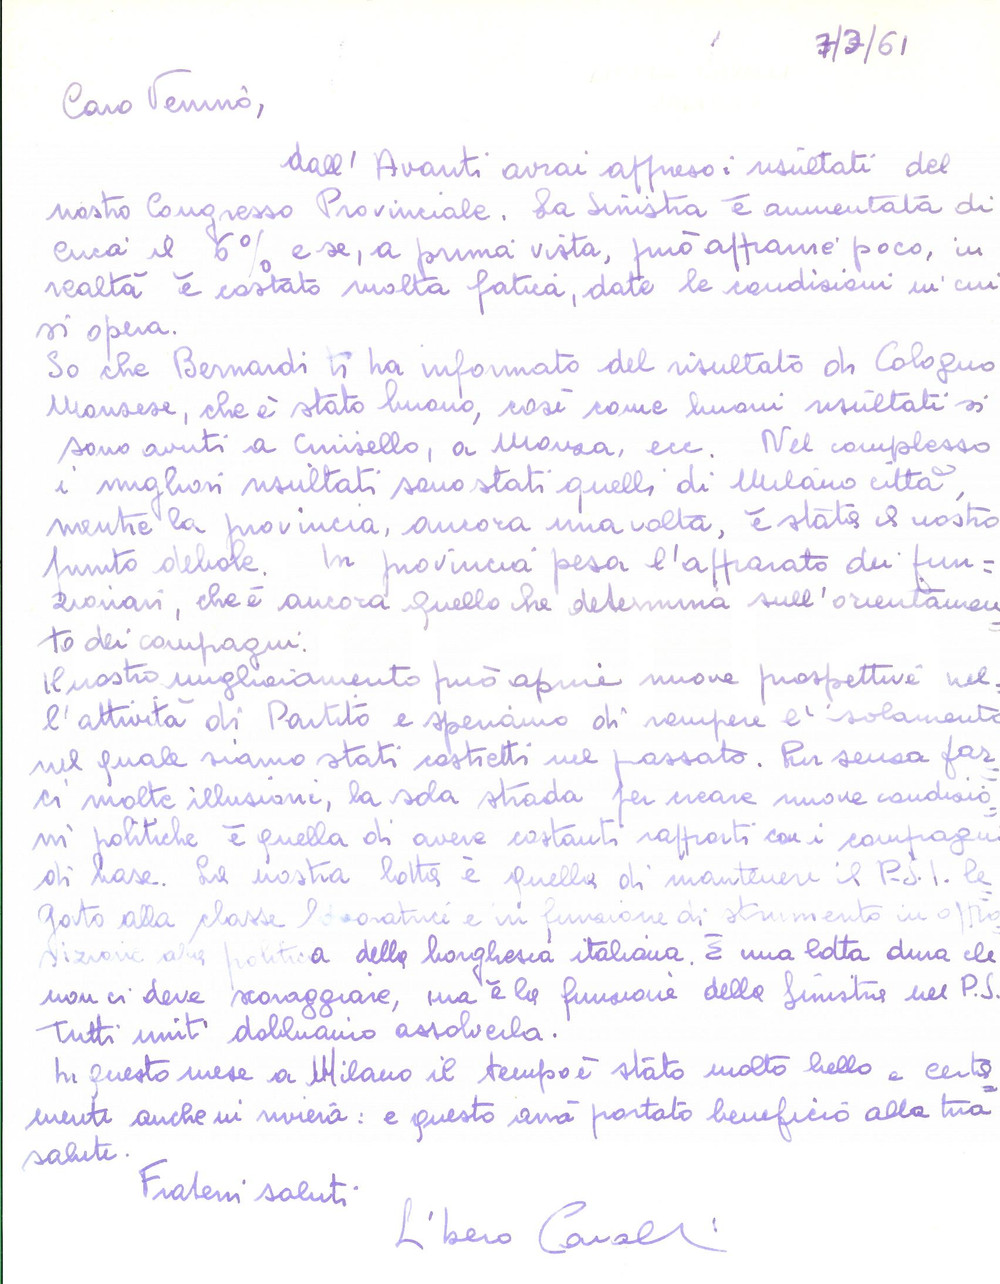 7/3/61
Caro Veninò,
dall' Avanti avrai appreso i risultati del
nostro Congresso Provinciale. La Sinistra è aumentata di
circa il 6% e se, a prima vista, può apparire poco, in
realtà è costato molta fatica, date le condizioni in cui
si opera.
So che Bernardi ti ha informato del risultato di Cologno
Monzese, che è stato buono, così come buoni risultati si
sono avuti a Cinisello, a Monza, ecc. Nel complesso
i migliori risultati sono stati quelli di Milano città,
mentre la provincia, ancora una volta, è stata il nostro
punto debole. In provincia pesa l'apparato dei fun=
zionari, che è ancora quello che determina sull'orientamen=
to dei compagni.
Il nostro miglioramento può aprire nuove prospettive nel=
l'attività di Partito e speriamo di rompere l'isolamento
nel quale siamo stati costretti nel passato. Pur senza far=
ci molte illusioni, la sola strada per creare nuove condizio=
ni politiche è quella di avere costanti rapporti con i compagni
di base. La nostra lotta è quella di mantenere il P.S.I. le=
gato alla classe lavoratrice e in funzione di strumento in oppo=
sizione alla politica della borghesia italiana. È una lotta dura che
non ci deve scoraggiare, ma è la funzione della Sinistra nel P.S.
Tutti uniti dobbiamo assolverla.
In questo mese a Milano il tempo è stato molto bello e certa=
mente anche in riviera: e questo avrà portato beneficio alla tua
salute.
Fraterni saluti
Libero Cavalli